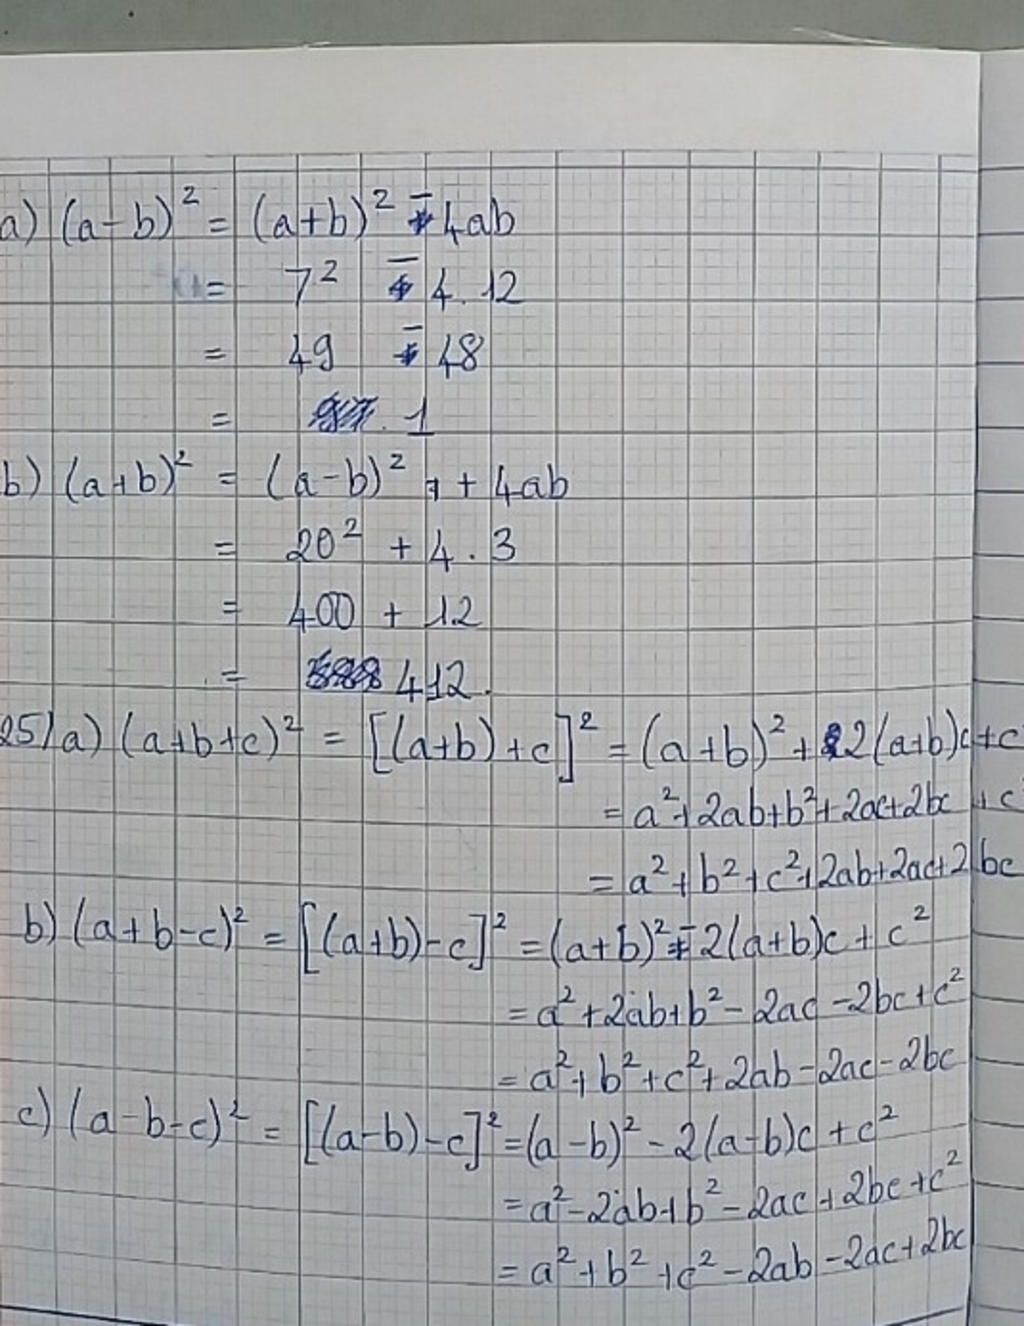 a) (a-b)² = (a+b)² - 4ab
= 7² - 4.12
= 49 - 48
= 1
b) (a+b)² = (a-b)² + 4ab
= 20² + 4.3
= 400 + 12
= 412.
25) a) (a+b+c)² = [(a+b)+c]² = (a+b)² + 2(a+b)c + c
= a²+2ab+b²+2ac+2bc + c
= a²+b²+c²+2ab+2ac+2bc
b) (a+b-c)² = [(a+b)-c]² = (a+b)² - 2(a+b)c + c²
= a²+2ab+b² - 2ac - 2bc + c²
= a²+b²+c²+2ab-2ac-2bc
c) (a-b-c)² = [(a-b)-c]² = (a-b)² - 2(a-b)c + c²
= a²-2ab+b²-2ac+2bc+c²
= a²+b²+c²-2ab-2ac+2bc